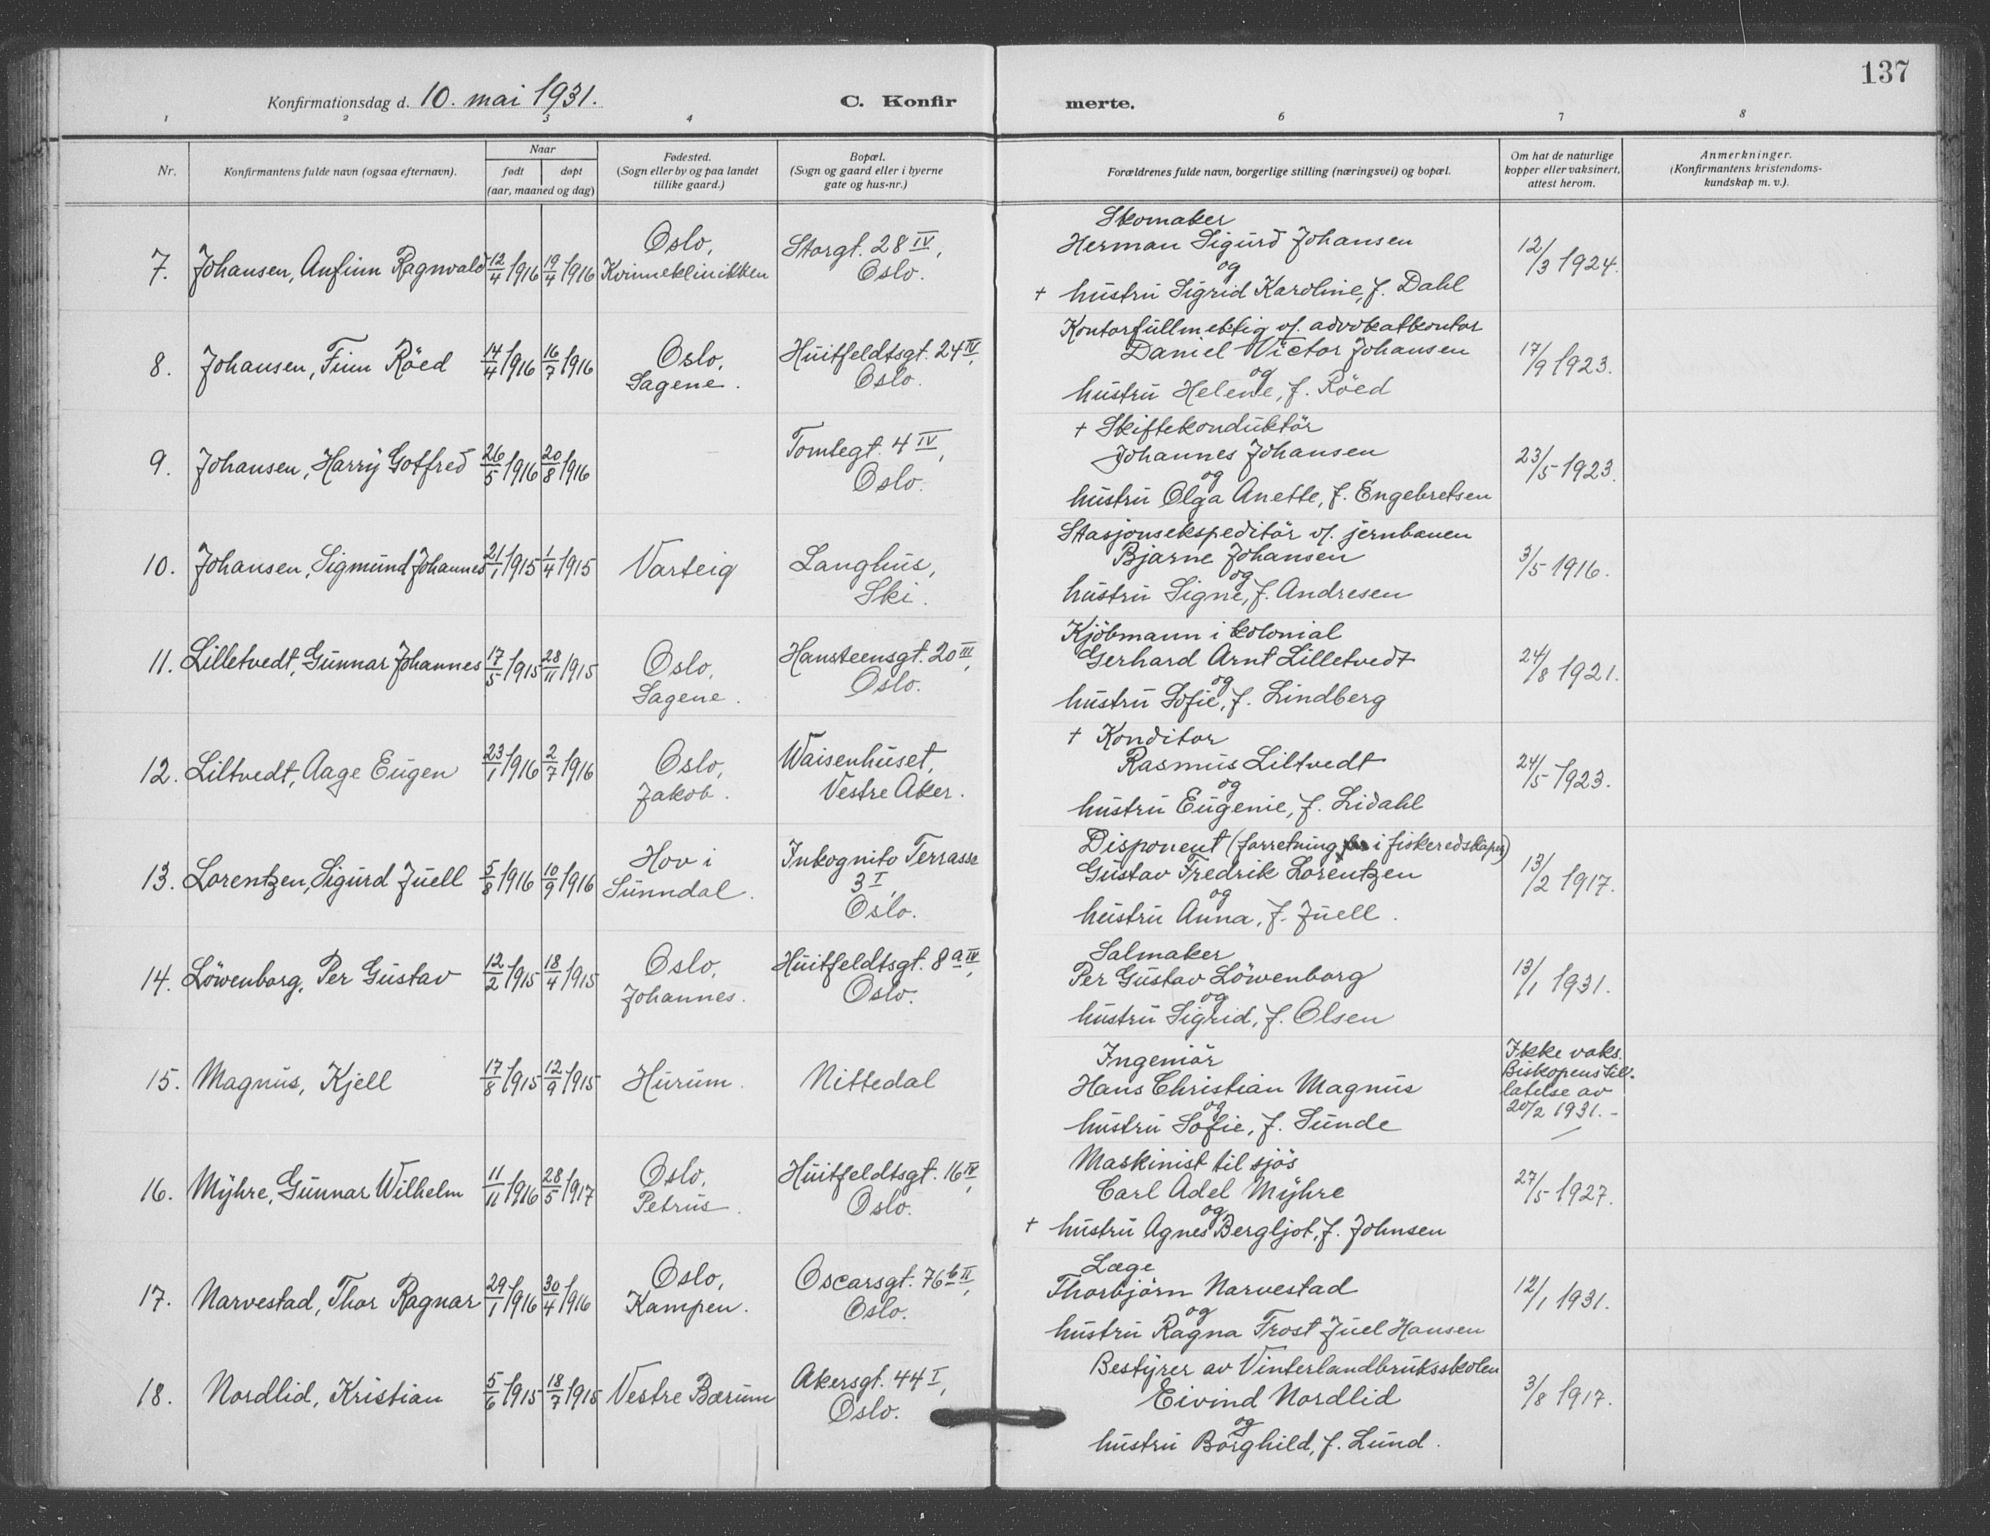 137
Konfirmationsdag d. 10. mai 1931. C. Konfir merte.
1 2 3 4 6 7 8
Nr.
Konfirmantens fulde navn (ogsaa efternavn).
Naar
født døpt
(aar, maaned og dag)
Fødested.
(Sogn eller by og paa landet
tillike gaard.)
Bopæl.
(Sogn og gaard eller i byerne
gate og hus-nr.)
Forældrenes fulde navn, borgerlige stilling (næringsvei) og bopæl.
Om hat de naturlige
kopper eller vaksinert,
attest herom.
Anmerkninger.
(Konfirmantens kristendoms-
kundskap m. v.).
7. Johansen, Anfinn Ragnvald 12/4 1916 19/4 1916
Oslo,
Kvinneklinikken
Storgt. 28 IV,
Oslo.
Skomaker
Herman Sigurd Johansen
og
+ hustru Sigrid Karoline, f. Dahl
12/3 1924.
8. Johansen, Finn Röed 14/4 1916 16/7 1916
Oslo,
Sagene.
Huitfeldtsgt. 24 IV,
Oslo.
Kontorfullmektig v/. advokatkontor
Daniel Victor Johansen
og
hustru Helene, f. Röed
17/9 1923.
9. Johansen, Harry Gotfred 26/5 1916 20/8 1916
Tomtegt. 4 IV,
Oslo.
+ Skiftekonduktör
Johannes Johansen
og
hustru Olga Anette, f. Engebretsen
23/5 1923.
10. Johansen, Sigmund Johannes 21/1 1915 1/4 1915
Varteig
Langhus,
Ski.
Stasjonsekspeditör v/. jernbanen
Bjarne Johansen
og
hustru Signe, f. Andresen
3/5 1916.
11. Lilletvedt, Gunnar Johannes 17/5 1915 28/11 1915
Oslo,
Sagene.
Hansteensgt. 20 III,
Oslo.
Kjöbmann i kolonial
Gerhard Arnt Lilletvedt
og
hustru Sofie, f. Lindberg
24/8 1921.
12. Liltvedt, Aage Eugen 23/1 1916 2/7 1916
Oslo,
Jakob.
Waisenhuset,
Vestre Aker.
+ Konditor
Rasmus Liltvedt
og
hustru Eugenie, f. Lidahl
24/5 1923.
13. Lorentzen, Sigurd Juell 5/8 1916 10/9 1916
Hov i
Sunndal.
Inkognito Terrasse
3 I,
Oslo.
Disponent (forretning i fiskeredskaper)
Gustav Fredrik Lorentzen
og
hustru Anna, f. Juell.
13/2 1917.
14. Löwenborg, Per Gustav 12/2 1915 18/4 1915
Oslo,
Johannes.
Huitfeldtsgt. 8 a IV,
Oslo.
Salmaker
Per Gustav Löwenborg
og
hustru Sigrid, f. Olsen
13/1 1931.
15. Magnus, Kjell 17/8 1915 12/9 1915
Hurum.
Nittedal
Ingeniör
Hans Christian Magnus
og
hustru Sofie, f. Sunde
Ikke vaks.
Biskopens til-
latelse av
20/2 1931.-
16. Myhre, Gunnar Wilhelm 11/11 1916 28/5 1917
Oslo,
Petrus.
Huitfeldtsgt. 16 IV,
Oslo.
Maskinist til sjös
Carl Adel Myhre
og
+ hustru Agnes Bergljot, f. Johnsen
27/5 1927.
17. Narvestad, Thor Ragnar 29/1 1916 30/4 1916
Oslo,
Kampen.
Oscarsgt. 76 b II,
Oslo.
Læge
Thorbjörn Narvestad
og
hustru Ragna Frost Juel Hansen
12/1 1931.
18. Nordlid, Kristian 5/6 1915 18/7 1915
Vestre Bærum
Akersgt. 44 I,
Oslo.
Bestyrer av Vinterlandbruksskolen
Eivind Nordlid
og
hustru Borghild, f. Lund.
3/8 1917.